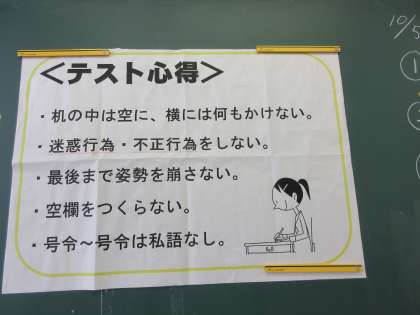 ＜テスト心得＞
・机の中は空に、横には何もかけない。
・迷惑行為・不正行為をしない。
・最後まで姿勢を崩さない。
・空欄をつくらない。
・号令～号令は私語なし。
10/5
①